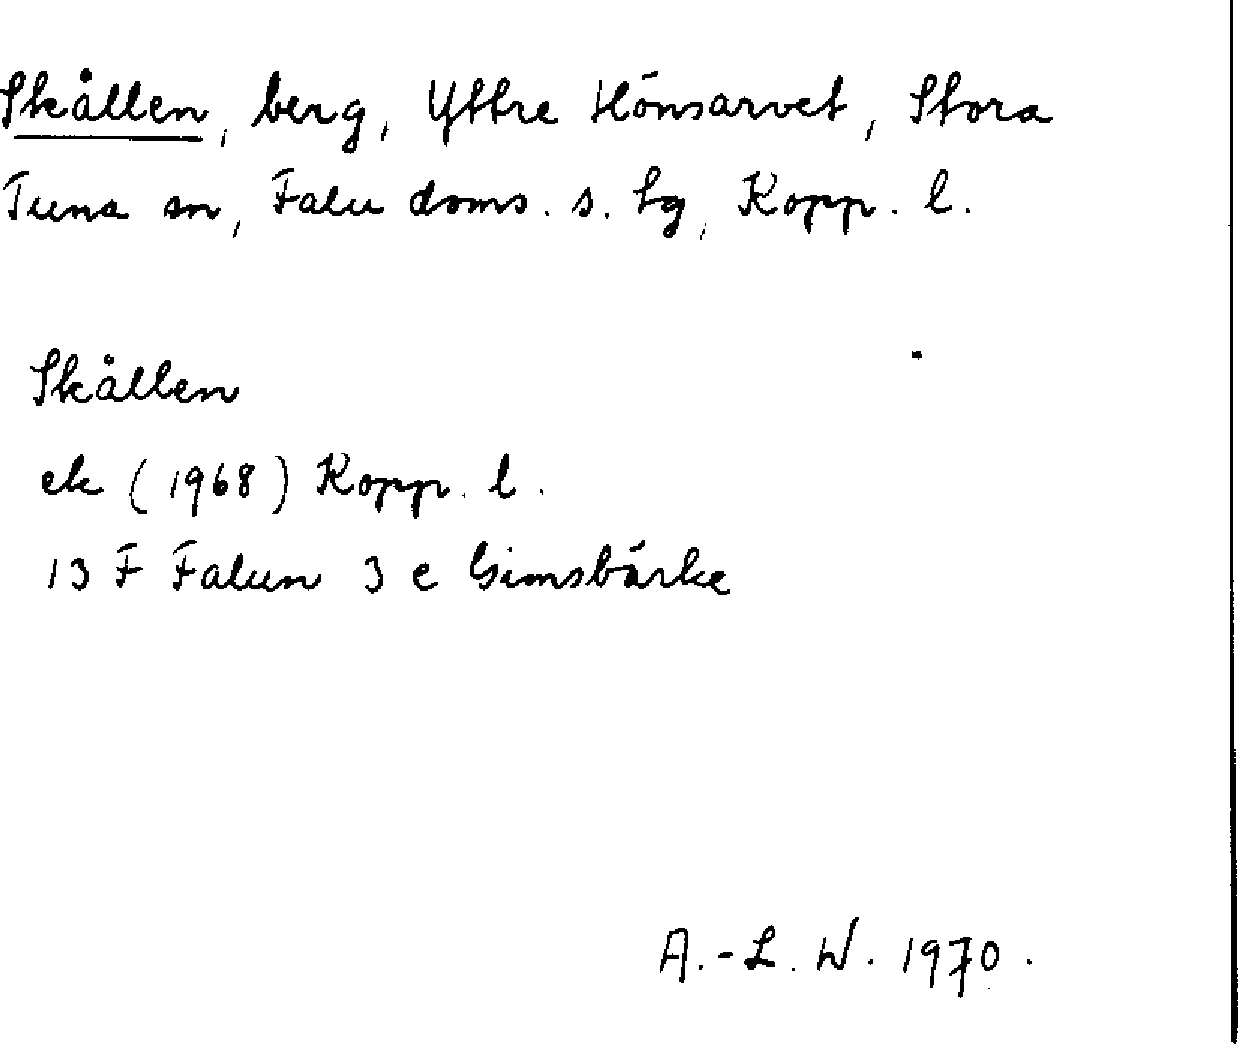 Skållen, berg, Yttre Hönsarvet, Stora
Tuna sn, Falu doms. s. tg, Kopp. l.
Skållen
ek (1968) Kopp. l.
13 F Falun 3 e Gimsbärke
A.-L. W. 1970.